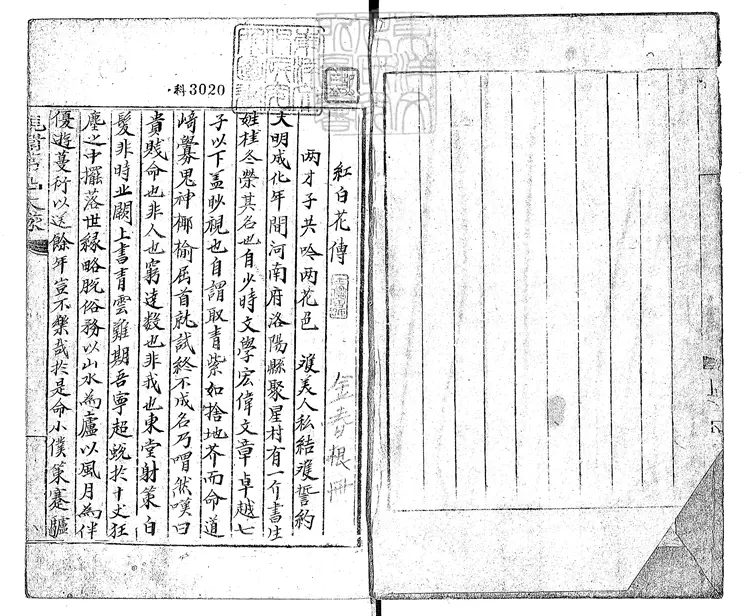 科3020
紅白花傳
两才子共吟两花邑 雙美人私結雙誓約
大明成化年間河南府洛陽縣聚星村有一介書生
姓桂冬榮其名也自少時文學宏偉文章卓越七
子以下盖眇視也自謂取青紫如捨地芥而命道
崎釁鬼神揶揄屈首就試終不成名乃喟然嘆曰
貴賤命也非人也窮達数也非我也東堂射策白
髮非時北闕上書青雲難期吾寧超蛻於十丈狂
塵之中擺落世緣略脫俗務以山水為廬以風月為伴
優遊蔓衍以送餘年豈不樂哉於是命小僕策蹇驢